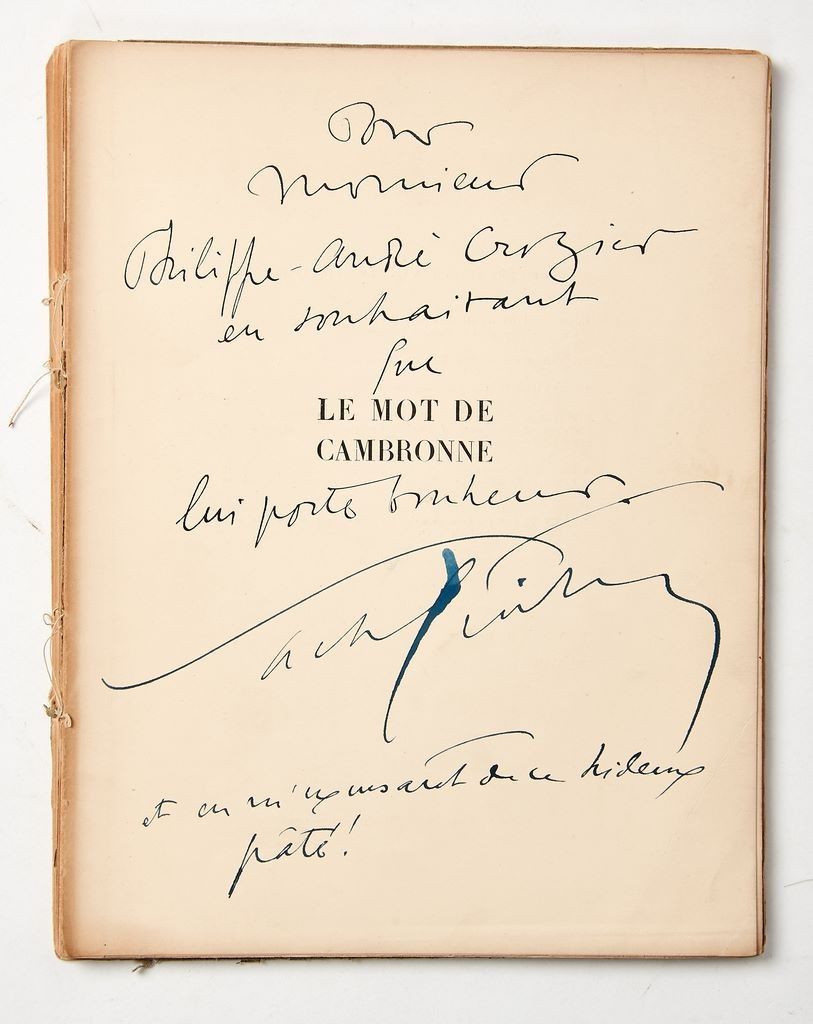 Pour
Monsieur
Philippe-André Crozier
en souhaitant
que
LE MOT DE
CAMBRONNE
lui porte bonheur.
Sacha Guitry
et en m'excusant de ce hideux
pâté!